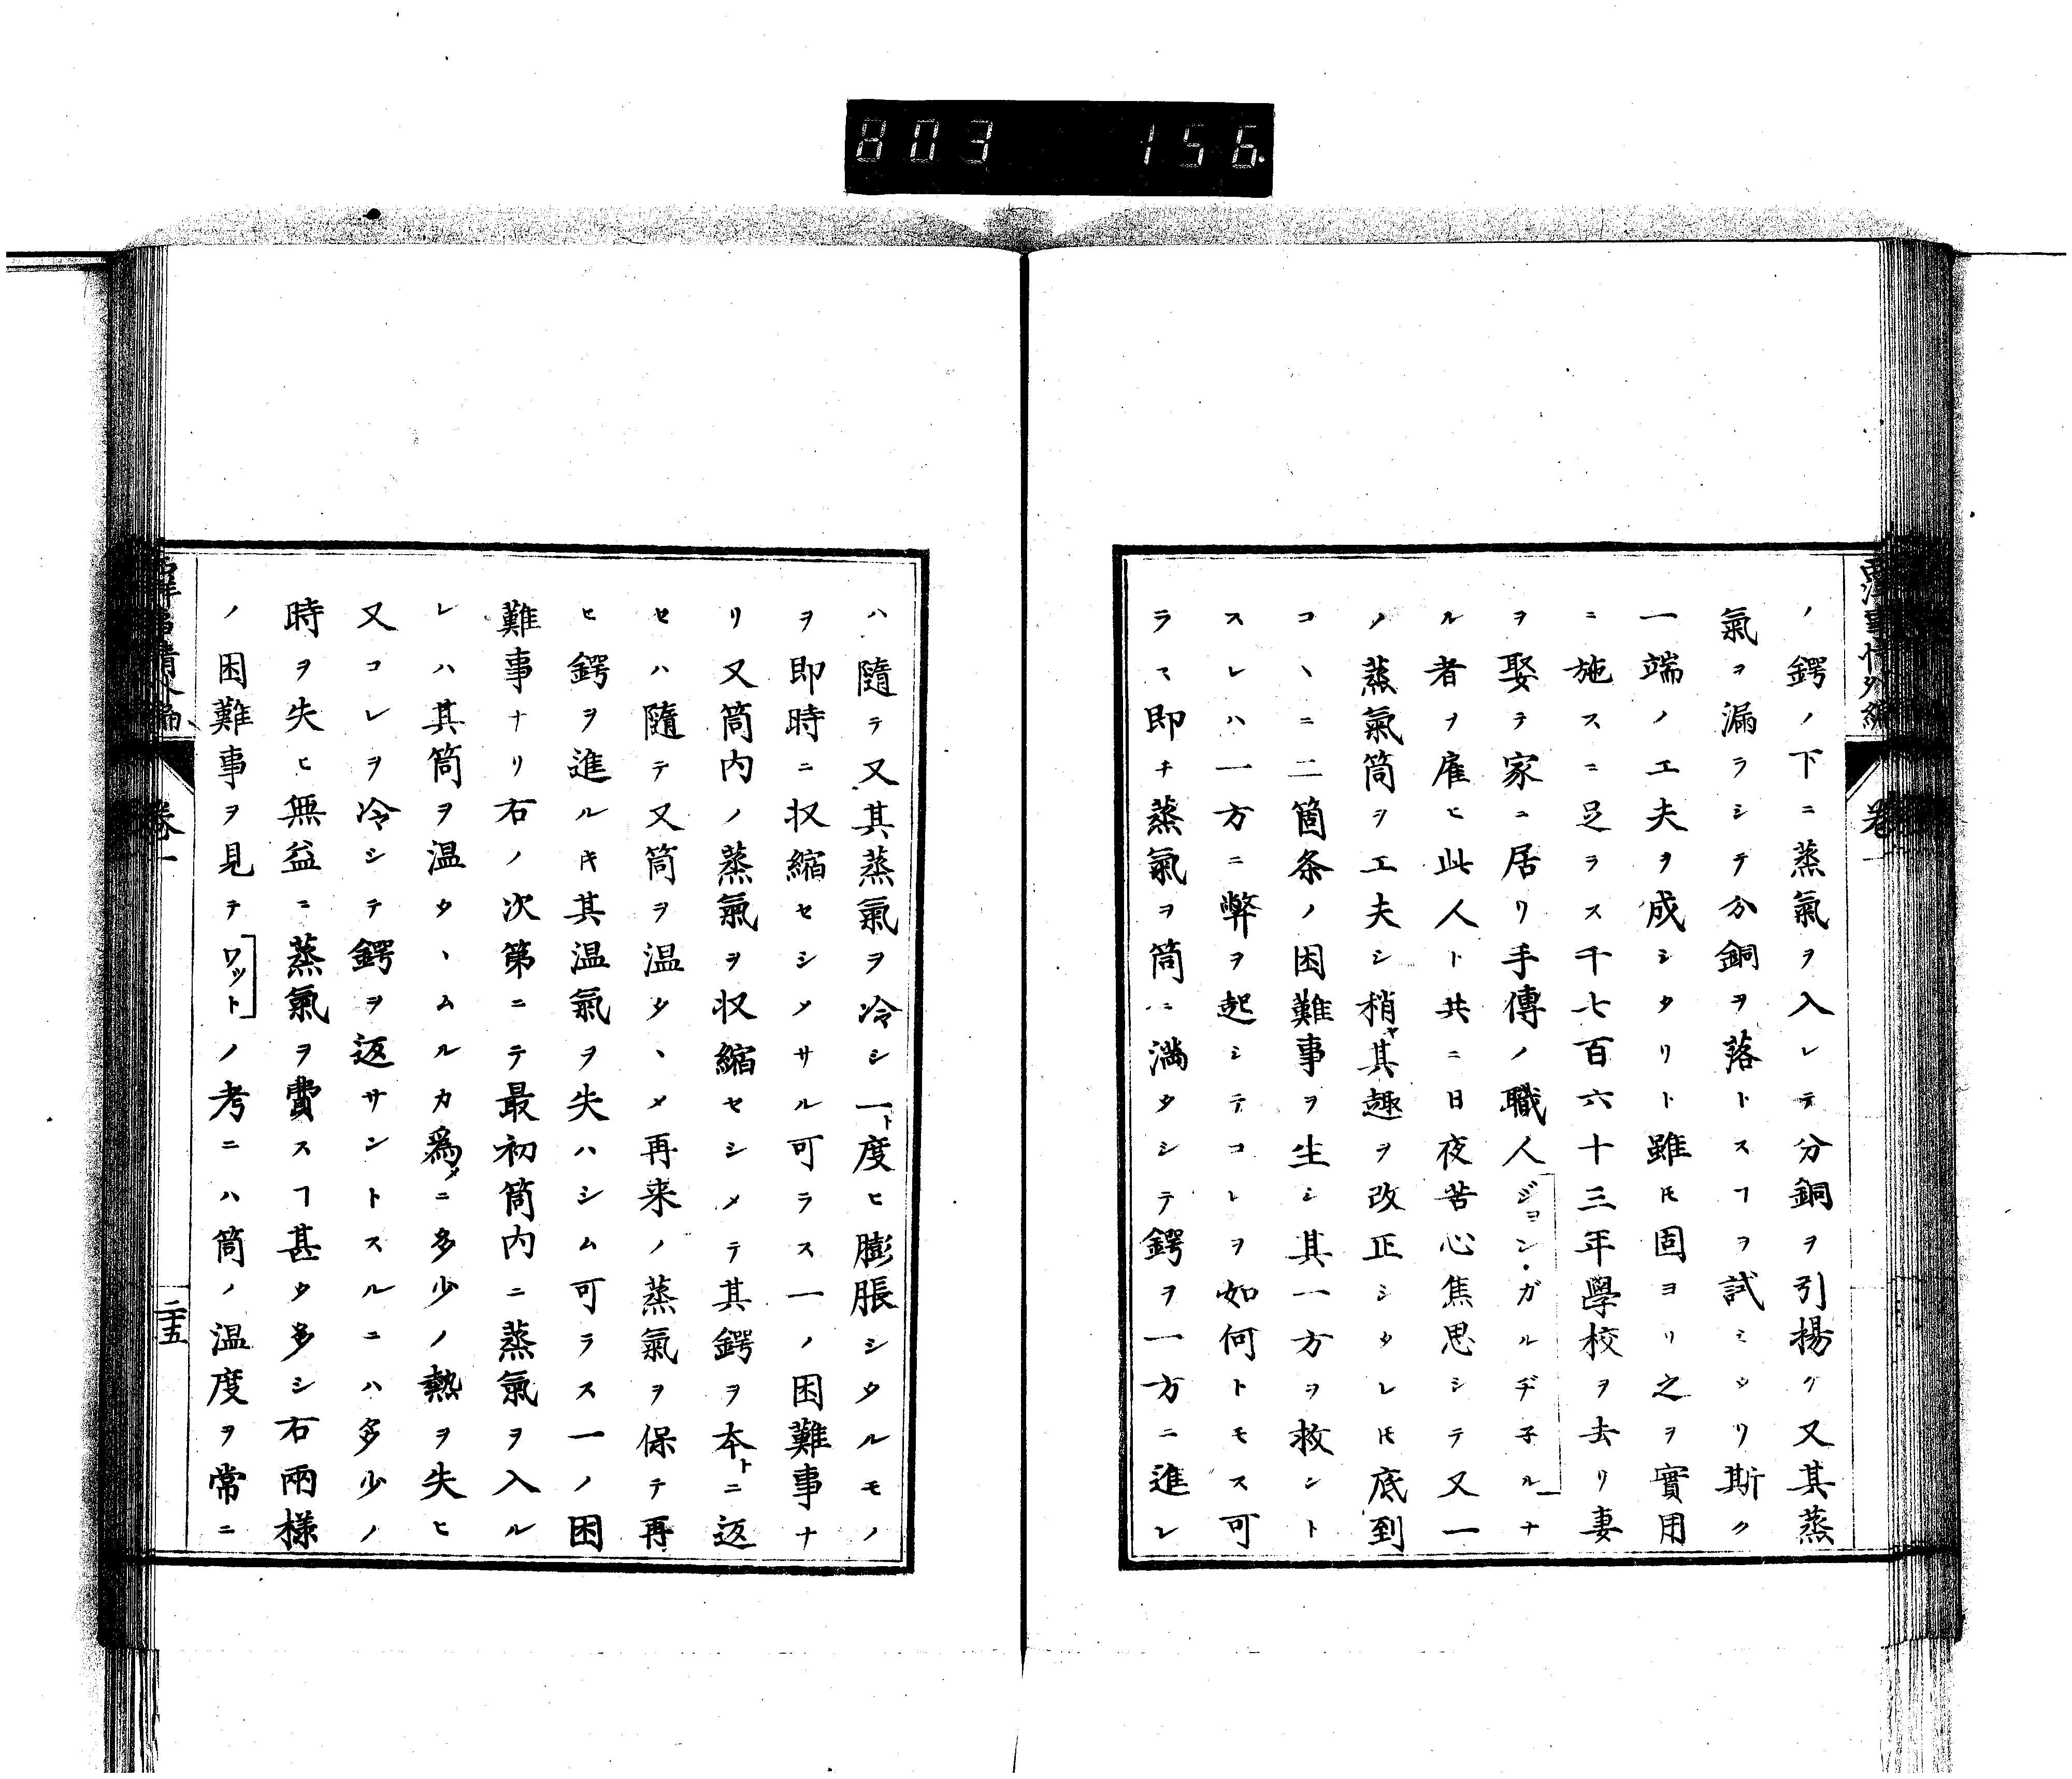 803 156
西洋事情外編 卷一
ノ鍔ノ下ニ蒸氣ヲ入レテ分銅ヲ引揚グ又其蒸
氣ヲ漏ラシテ分銅ヲ落トスヿヲ試ミシリ斯ク
一端ノ工夫ヲ成シタリト雖𪜈固ヨリ之ヲ實用
ニ施スニ足ラス千七百六十三年學校ヲ去リ妻
ヲ娶テ家ニ居リ手傳ノ職人ジョン・ガルヂ子ルナ
ル者ヲ雇ヒ此人ト共ニ日夜苦心焦思シテ又一
ノ蒸氣筒ヲ工夫シ稍ヤ其趣ヲ改正シタレ𪜈底到
コヽニ二箇条ノ困難事ヲ生シ其一方ヲ救ント
スレハ一方ニ弊ヲ起シテコレヲ如何トモス可
ラス即チ蒸氣ヲ筒ニ満タシテ鍔ヲ一方ニ進レ
ハ隨テ又其蒸氣ヲ冷シ一ト度ヒ膨脹シタルモノ
ヲ即時ニ収縮セシメサル可ラス一ノ困難事ナ
リ又筒内ノ蒸氣ヲ収縮セシメテ其鍔ヲ本トニ返
セハ隨テ又筒ヲ温タヽメ再来ノ蒸氣ヲ保テ再
ヒ鍔ヲ進ルキ其温氣ヲ失ハシム可ラス一ノ困
難事ナリ右ノ次第ニテ最初筒内ニ蒸氣ヲ入ル
レハ其筒ヲ温タヽムルカ爲メニ多少ノ熱ヲ失ヒ
又コレヲ冷シテ鍔ヲ返サントスルニハ多少ノ
時ヲ失ヒ無益ニ蒸氣ヲ費スヿ甚タ多シ右兩樣
ノ困難事ヲ見テワットノ考ニハ筒ノ温度ヲ常ニ
卷一 二十五